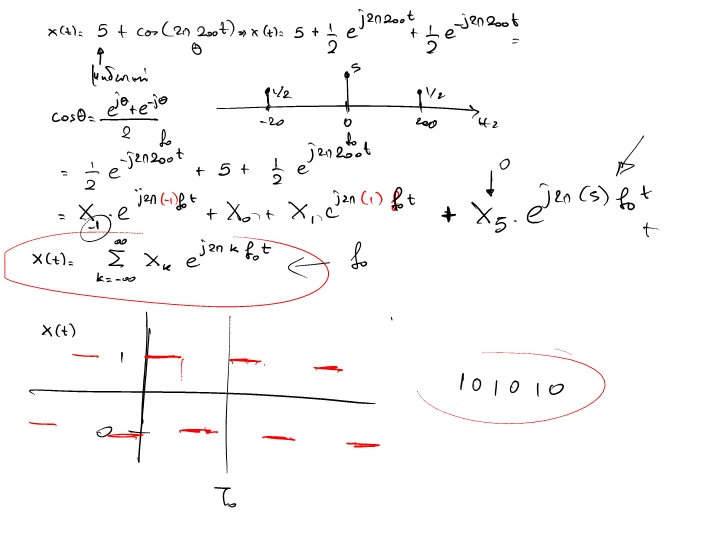 x(t)= 5 + cos(2π 200t) ⇒ x(t)= 5 + 1/2 e^{j2π200t} + 1/2 e^{-j2π200t}
θ =
cosθ = (e^{jθ}+e^{-jθ})/2
1/2 5 1/2
-20 0 200 Hz
= 1/2 e^{-j2π200t} + 5 + 1/2 e^{j2π200t}
f₀ f₀
0
= X_{-1}·e^{j2π(-1)f₀t} + X₀ + X₁e^{j2π(1)f₀t} + X₅·e^{j2π(5)f₀t}
t
x(t)= ∑_{k=-∞}^{∞} X_k e^{j2πkf₀t} ← f₀
x(t)
1
101010
0
T₀